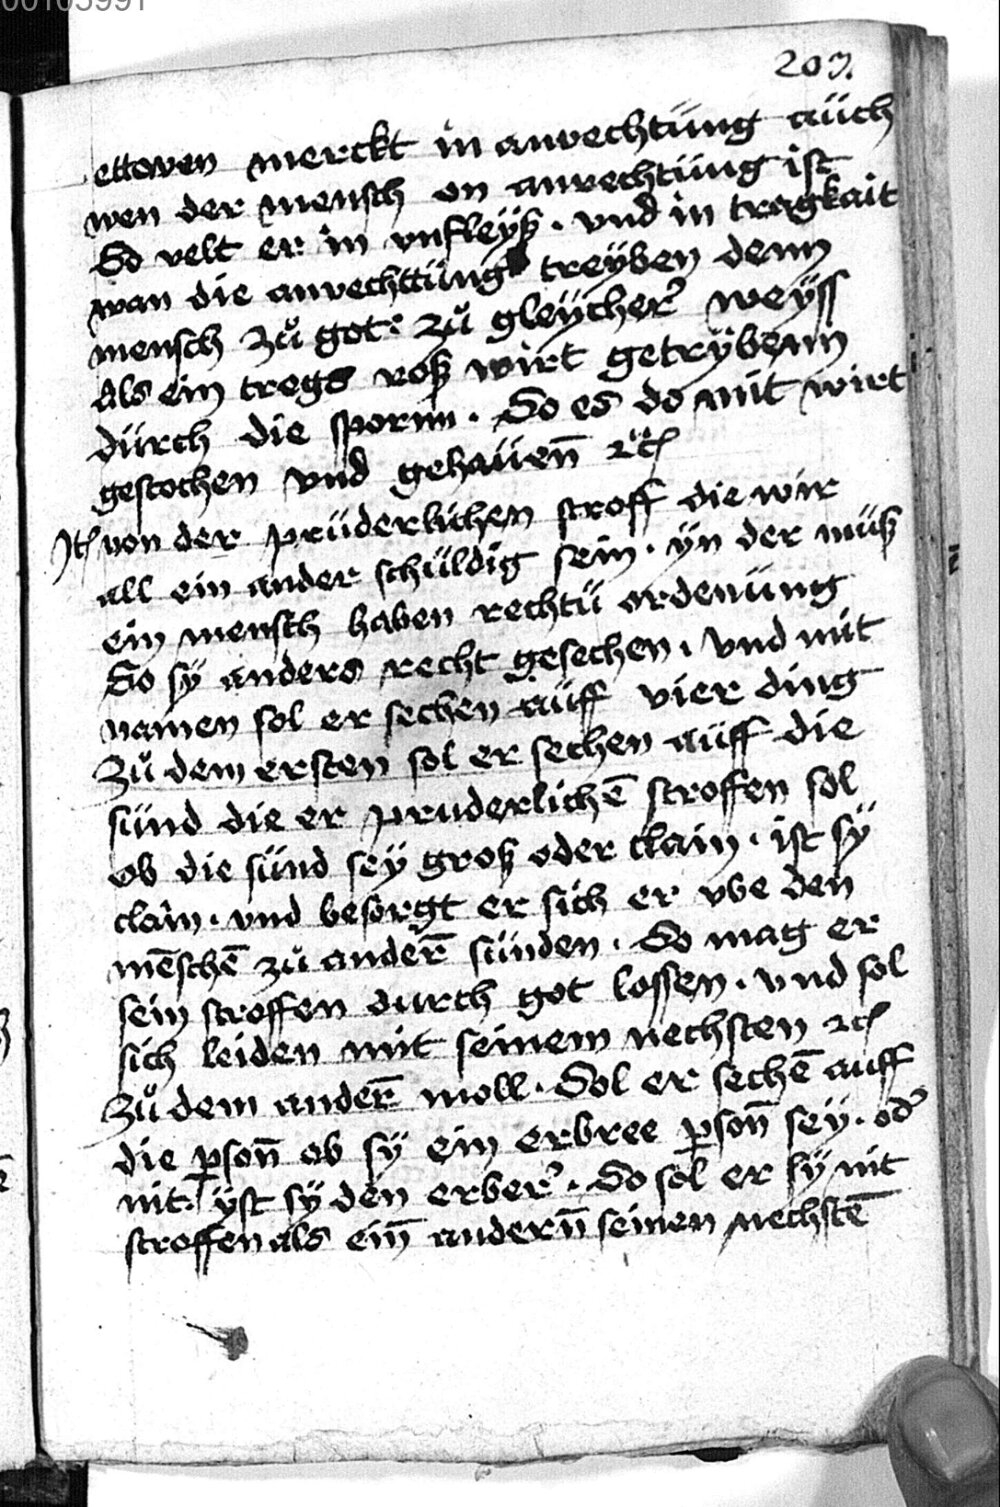 00105991
203.
ettwen merckt in anvechtüng aüch
wen der mensch on anvechtüng ist
So velt er in vnfleÿß . vnd in tragkait
wan die anvechttüng treÿben denn
mensch zů got : zů gleÿcher weÿss
Als ein tregs roß wirt getrÿbenn
dürch die spornn . So es do mit wirt
gestochen vnd gehaüen̄ ꝛc̃
Itẽ von der prüderlichen stroff die wir
all ein ander schüldig sein . ÿn der müß
ein mensch haben rechtü ordenüng
So sÿ anders recht gesechen . vnd mit
namen sol er sechen aüff vier ding
Zů dem ersten sol er sechen aüff die
sünd die er pruderlichē stroffen sol
ob die sünd seÿ groß oder clain . ist sÿ
clain . vnd besorgt er sich er vbe den
mēschē zů anderē sünden . So mag er
sein stroffen durch got lossen . vnd sol
sich leiden mit seinem nechsten ꝛc̃
Zů dem anderē moll . Sol er sechē auff
die ꝑson̄ ob sÿ ein erbree ꝑson̄ seÿ . od'
nit . ÿst sÿ den erber' . So sol er sÿ nit
stroffen als ein̄ andern̄ seinen nechstē